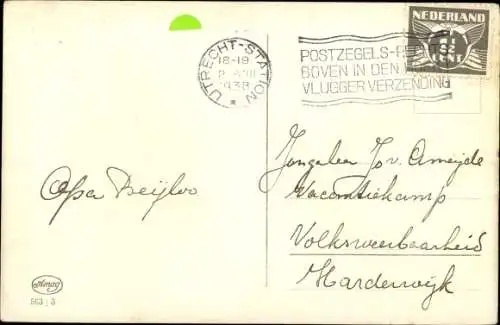 UTRECHT-STATION
18-19
VIII
1938
POSTZEGELS-
BOVEN IN DEN
VLUGGER VERZENDING
NEDERLAND
1½ CENT
Jongeheer Jo v. Ameijde
Vacantiekamp
Volksweerbaarheid
Harderwijk
Opa
Amag
563 / 3